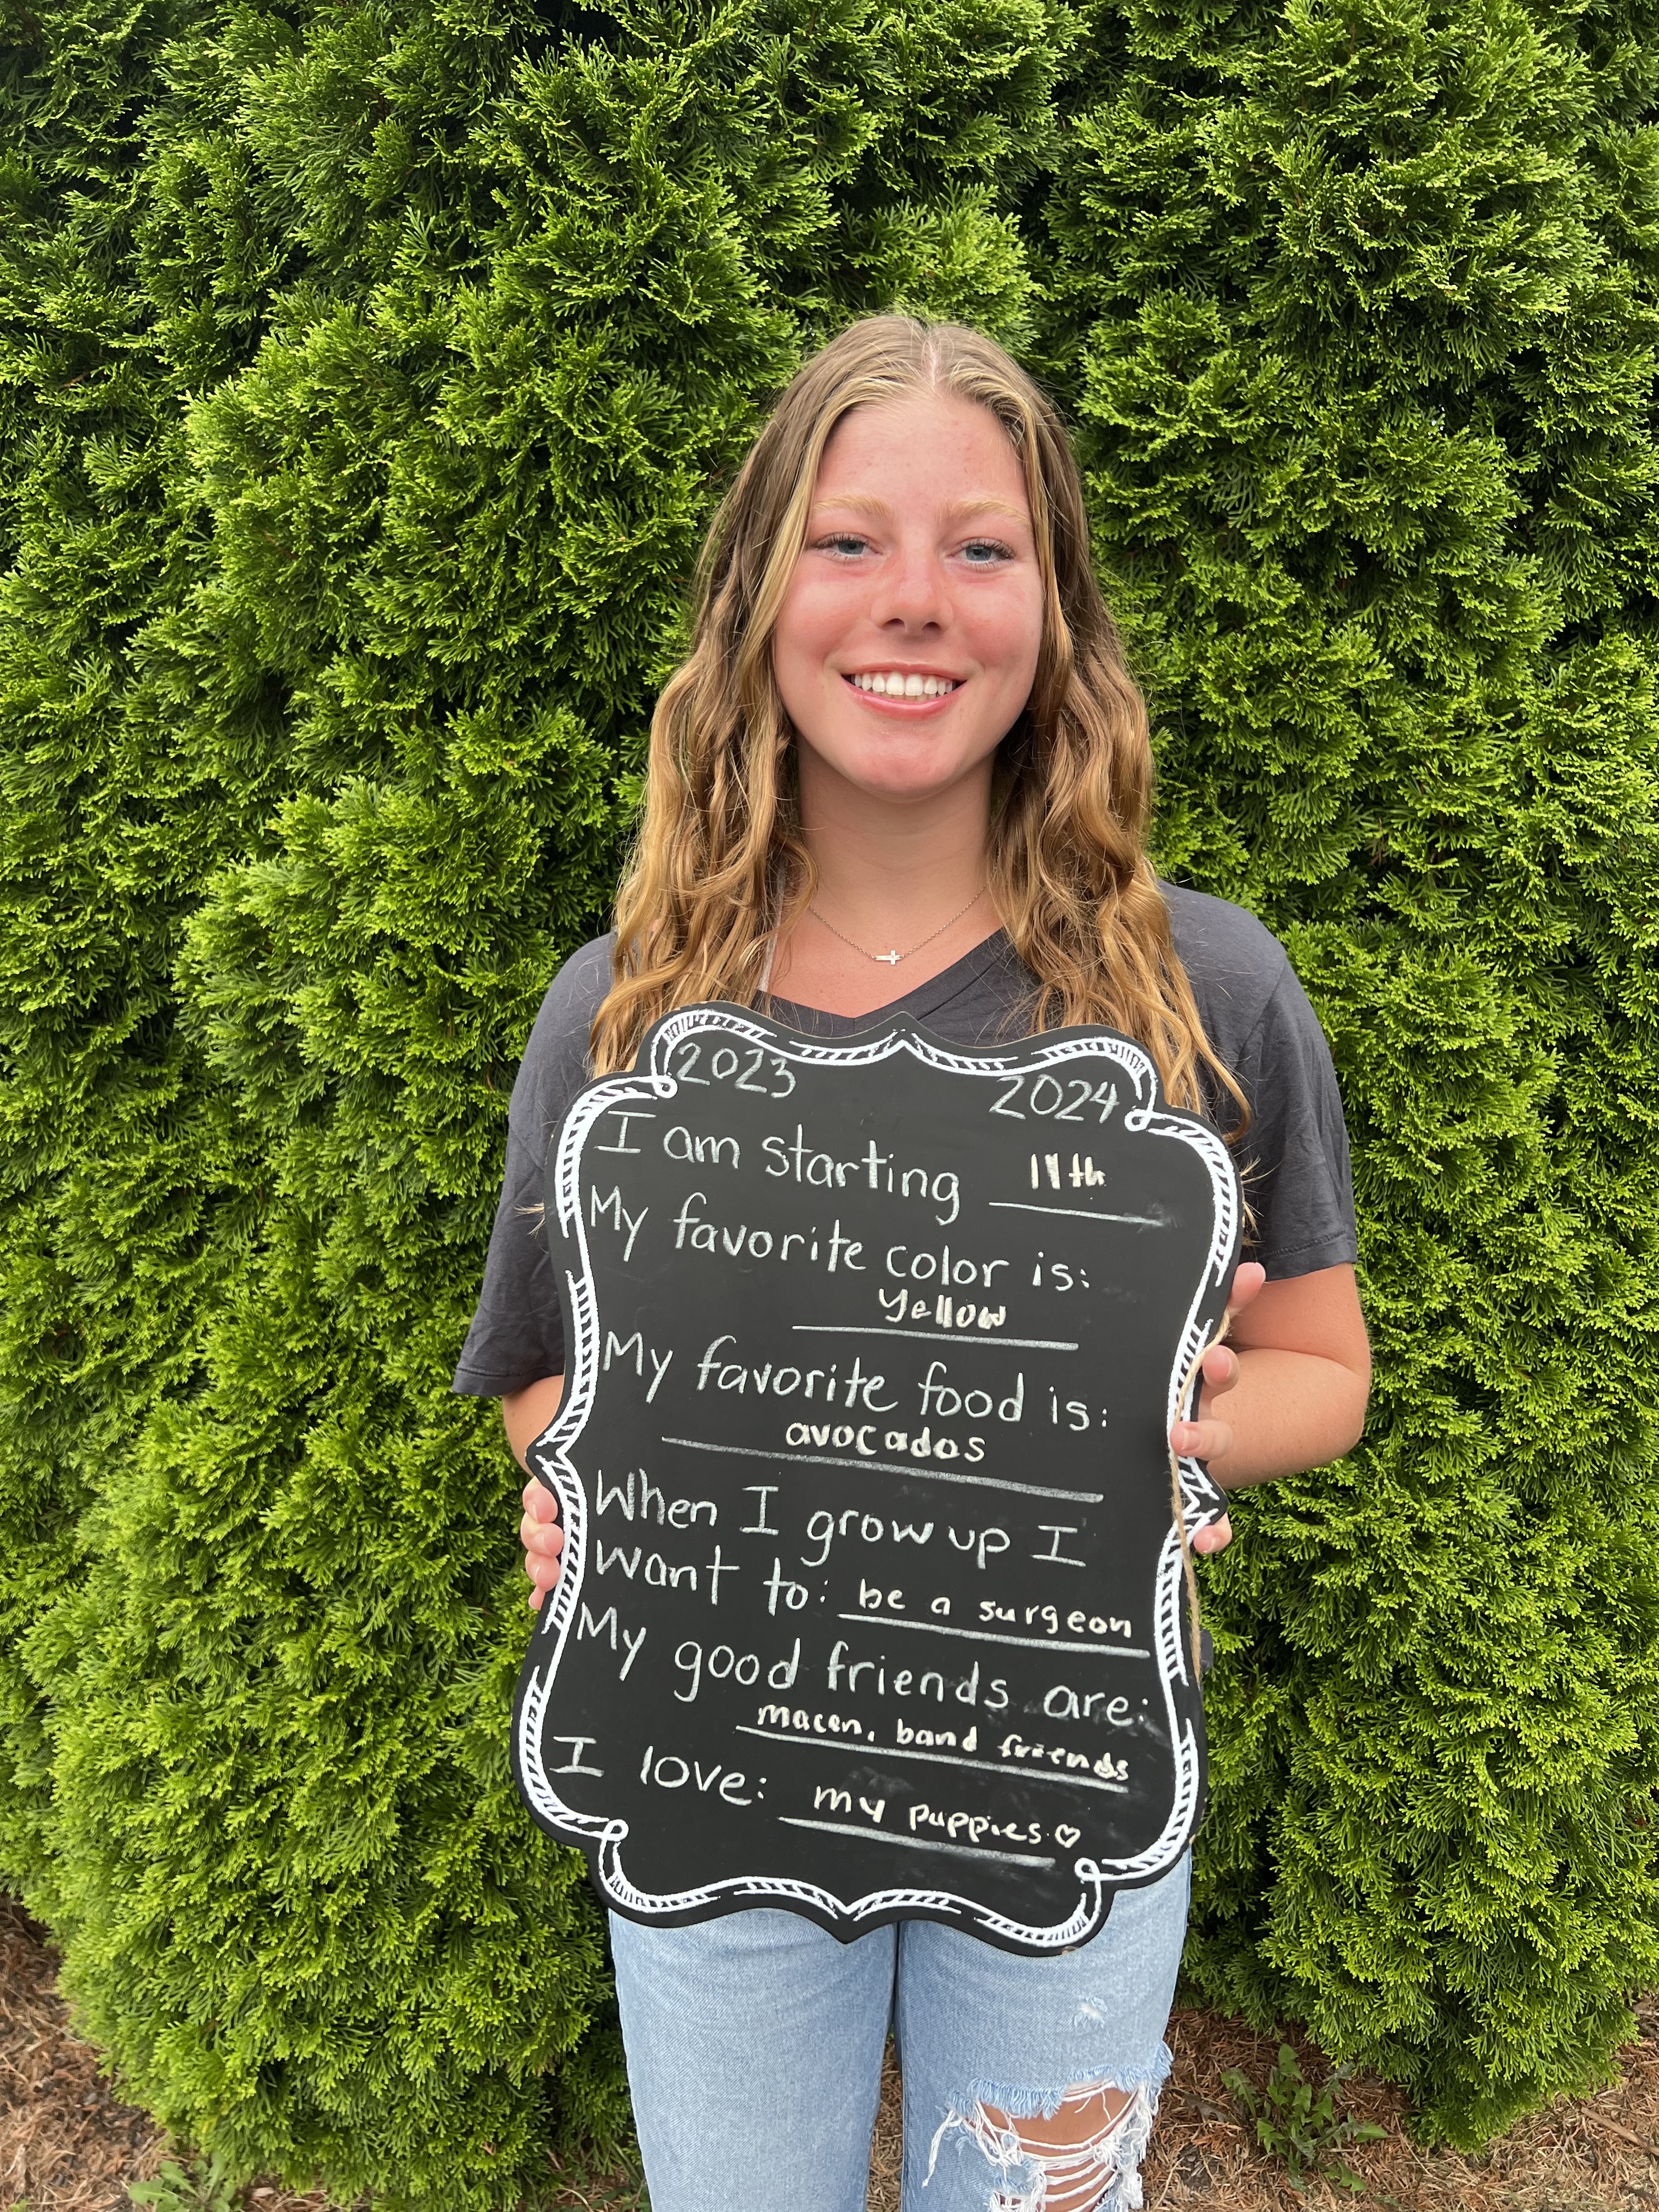 2023 2024
I am starting 11th
My favorite color is:
yellow
My favorite food is:
avocados
When I grow up I
want to: be a surgeon
My good friends are:
macen, band friends
I love: my puppies ♡